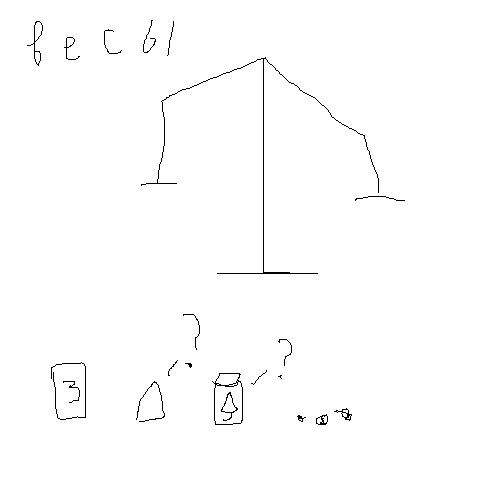 весы
?
?
3